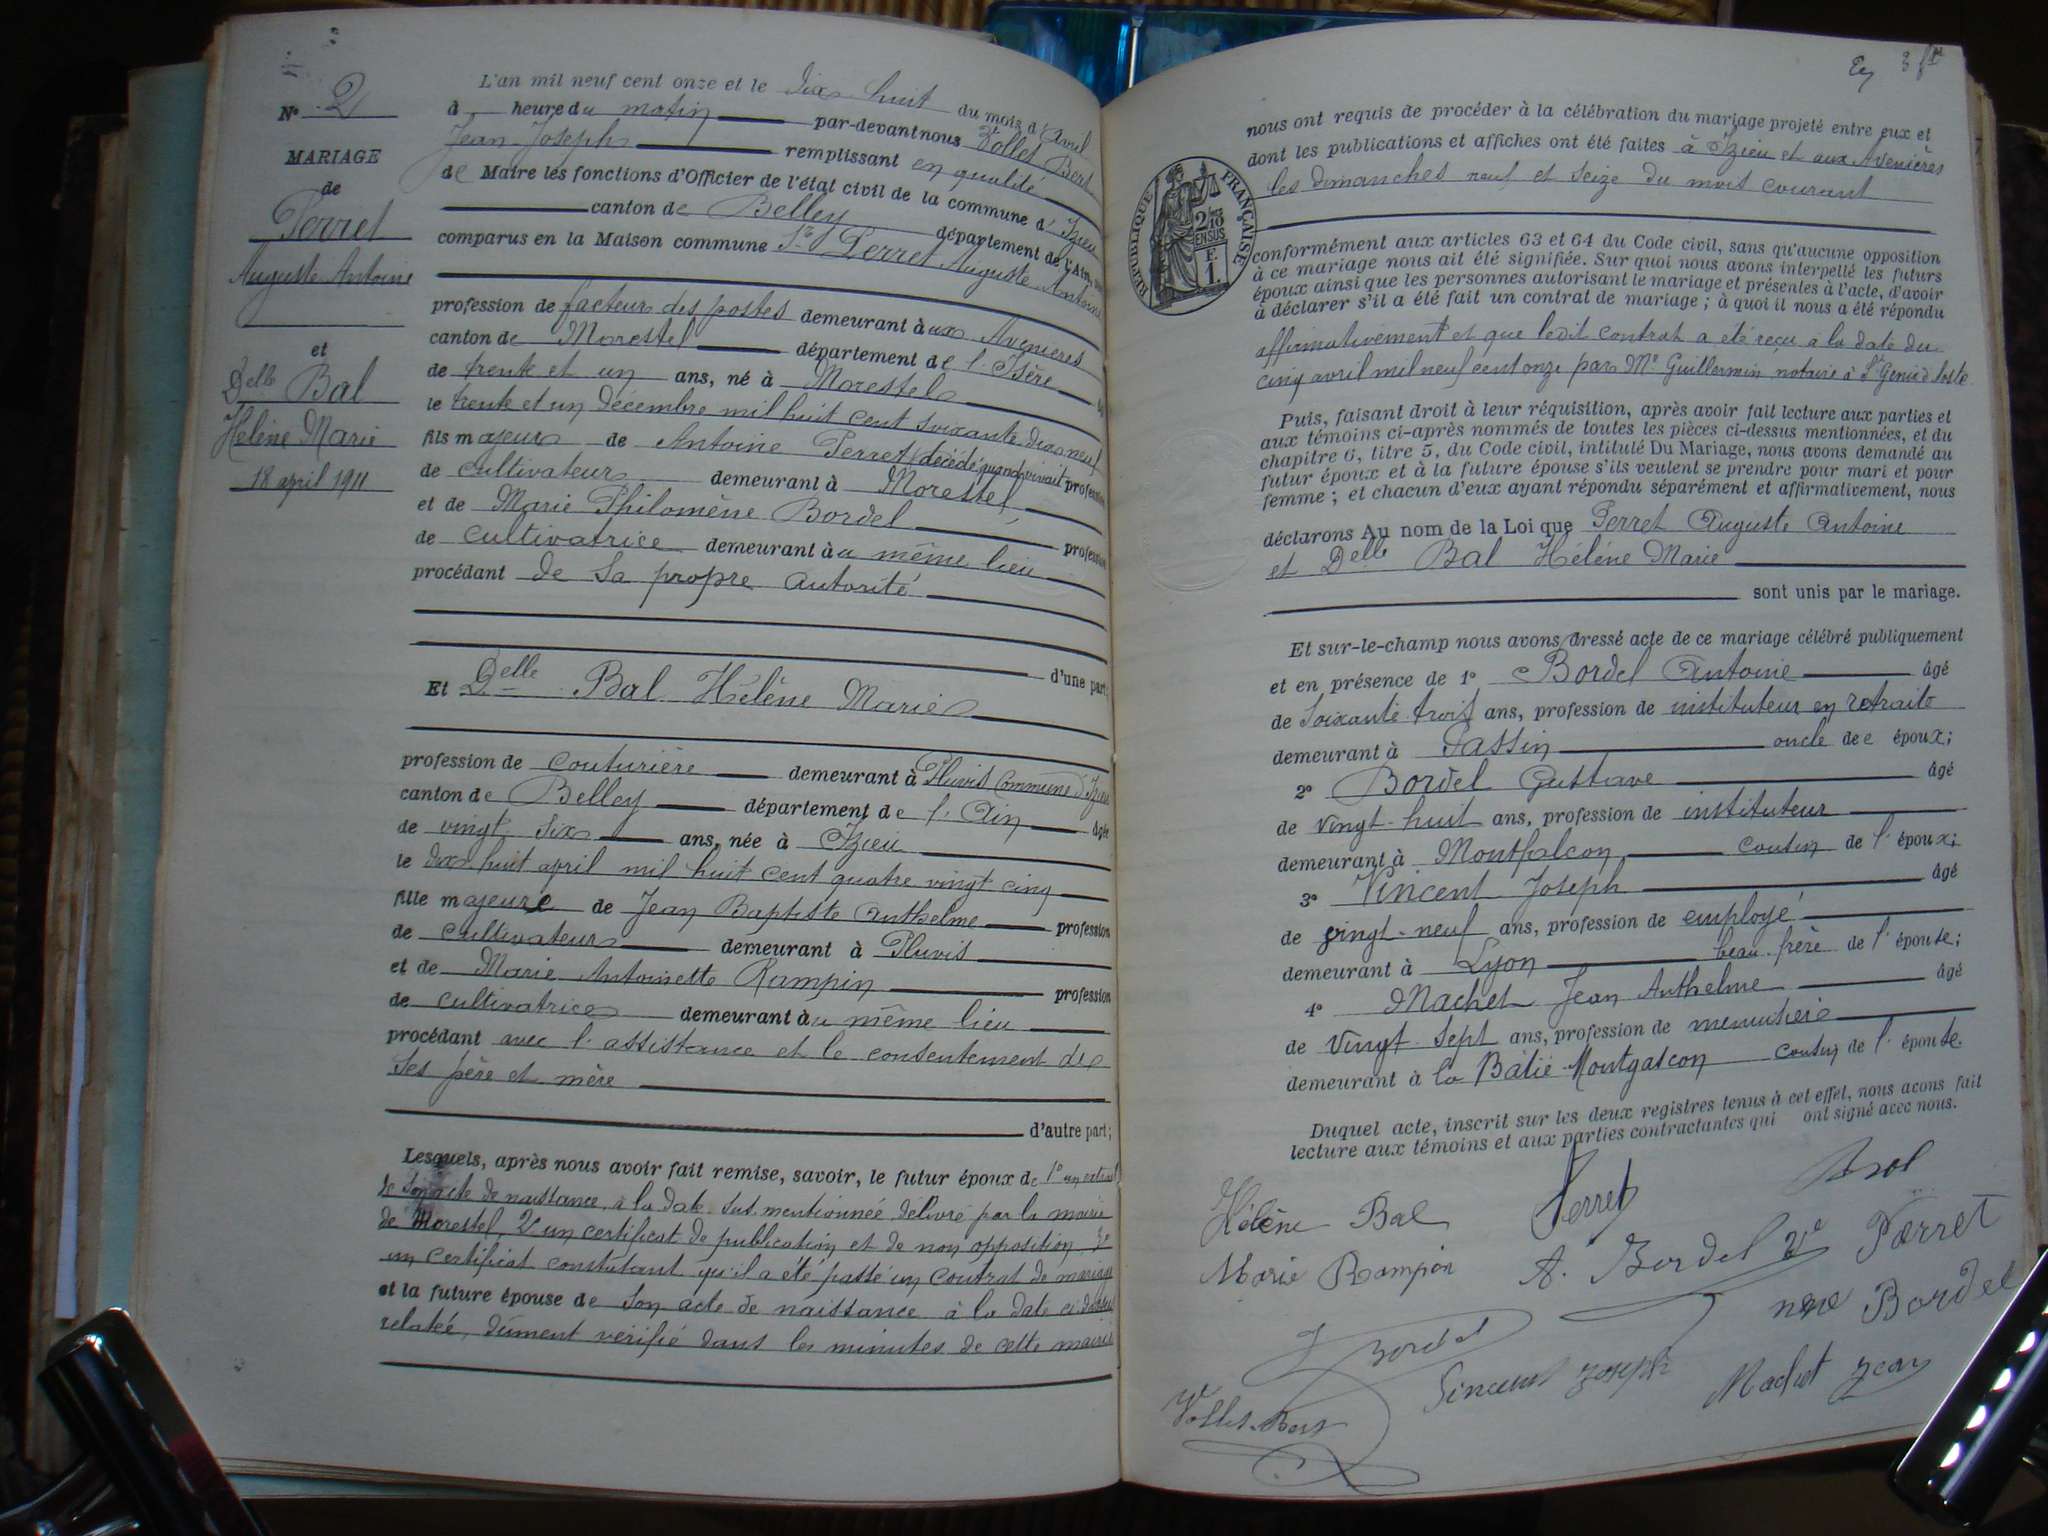 L'an mil neuf cent onze et le dix huit du mois d'avril
à heure du matin par-devant nous Vollet Bert
Jean Joseph remplissant en qualité
de Maire les fonctions d'Officier de l'état civil de la commune d'Izieu
canton de Belley département de l'Ain,
comparus en la Maison commune Sr Perret Auguste Antoine
profession de facteur des postes demeurant aux Avenières
canton de Morestel département de l'Isère
de trente et un ans, né à Morestel
le trente et un décembre mil huit cent soixante dix neuf
fils majeur de Antoine Perret (décédé quand vivait profession
de cultivateur demeurant à Morestel
et de Marie Philomène Bordel profession
de cultivatrice demeurant au même lieu
procédant de sa propre autorité
d'une part;
Et Delle Bal Hélène Marie
profession de couturière demeurant à Pluvis commune d'Izieu
canton de Belley département de l'Ain âgée
de vingt six ans, née à Izieu
le dix huit april mil huit cent quatre vingt cinq
fille majeure de Jean Baptiste Anthelme profession
de cultivateur demeurant à Pluvis
et de Marie Antoinette Rampin profession
de cultivatrice demeurant au même lieu
procédant avec l'assistance et le consentement de
ses père et mère
d'autre part;
Lesquels, après nous avoir fait remise, savoir, le futur époux de 1º un extrait
de son acte de naissance à la date sus mentionnée délivré par la mairie
de Morestel, 2º un certificat de publication et de non opposition 3º
un certificat constatant qu'il a été passé un contrat de mariage
et la future épouse de son acte de naissance à la date ci dessus
relatée, dûment vérifié dans les minutes de cette mairie
Nº 2
MARIAGE
de
Perret
Auguste Antoine
et
Delle Bal
Hélène Marie
18 april 1911
nous ont requis de procéder à la célébration du mariage projeté entre eux et
dont les publications et affiches ont été faites à Izieu et aux Avenières
les dimanches neuf et seize du mois courant
RÉPUBLIQUE FRANÇAISE
2/10
EN SUS
E
1
conformément aux articles 63 et 64 du Code civil, sans qu'aucune opposition
à ce mariage nous ait été signifiée. Sur quoi nous avons interpellé les futurs
époux ainsi que les personnes autorisant le mariage et présentes à l'acte, d'avoir
à déclarer s'il a été fait un contrat de mariage ; à quoi il nous a été répondu
affirmativement et que ledit contrat a été reçu à la date du
cinq avril mil neuf cent onze par Me Guillermin, notaire à St Genix
Puis, faisant droit à leur réquisition, après avoir fait lecture aux parties et
aux témoins ci-après nommés de toutes les pièces ci-dessus mentionnées, et du
chapitre 6, titre 5, du Code civil, intitulé Du Mariage, nous avons demandé au
futur époux et à la future épouse s'ils veulent se prendre pour mari et pour
femme ; et chacun d'eux ayant répondu séparément et affirmativement, nous
déclarons Au nom de la Loi que Perret Auguste Antoine
et Delle Bal Hélène Marie
sont unis par le mariage.
Et sur-le-champ nous avons dressé acte de ce mariage célébré publiquement
et en présence de 1º Bordel Antoine âgé
de soixante trois ans, profession de instituteur en retraite
demeurant à Passin oncle de époux;
2º Bordel Gustave âgé
de vingt-huit ans, profession de instituteur
demeurant à Montfalcon cousin de l'époux;
3º Vincent Joseph âgé
de vingt-neuf ans, profession de employé
demeurant à Lyon beau-frère de l'épouse;
4º Machet Jean Anthelme âgé
de vingt sept ans, profession de menuisier
demeurant à la Bâtie-Montgascon cousin de l'épouse.
Duquel acte, inscrit sur les deux registres tenus à cet effet, nous avons fait
lecture aux témoins et aux parties contractantes qui ont signé avec nous.
Hélène Bal Perret
Marie Rampin A. Bordel Vve Perret
née Bordel
Bordel Vincent Joseph Machet Jean
Vollet-Bert